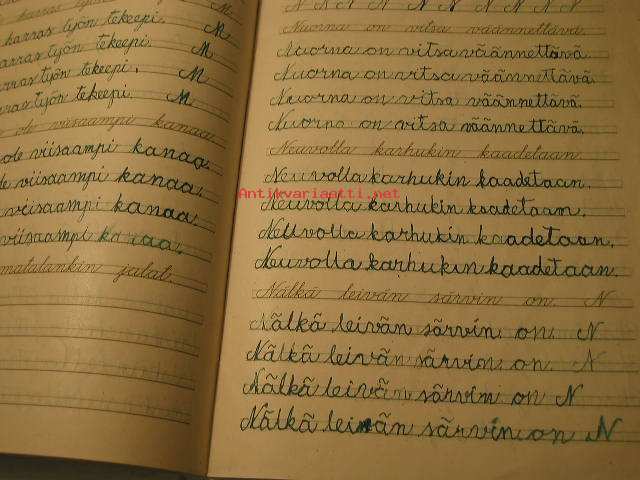 M
harras työn tekeepi. M
harras työn tekeepi. M
harras työn tekeepi. M
harras työn tekeepi. M
ole viisaampi kanaa.
ole viisaampi kanaa.
de viisaampi kanaa.
viisaampi kanaa.
viisaampi kanaa.
matalankin jalat.
N N N N N N N N
Nuorna on vitsa väännettävä.
Nuorna on vitsa väännettävä.
Nuorna on vitsa väännettävä.
Nuorna on vitsa väännettävä.
Nuorna on vitsa väännettävä.
Neuvolla karhukin kaadetaan.
Neuvolla karhukin kaadetaan.
Neuvolla karhukin kaadetaan.
Neuvolla karhukin kaadetaan.
Neuvolla karhukin kaadetaan.
Nälkä leivän särvin on. N
Nälkä leivän särvin on. N
Nälkä leivän särvin on. N
Nälkä leivän särvin on N
Nälkä leivän särvin on N
Antikvariaatti.net